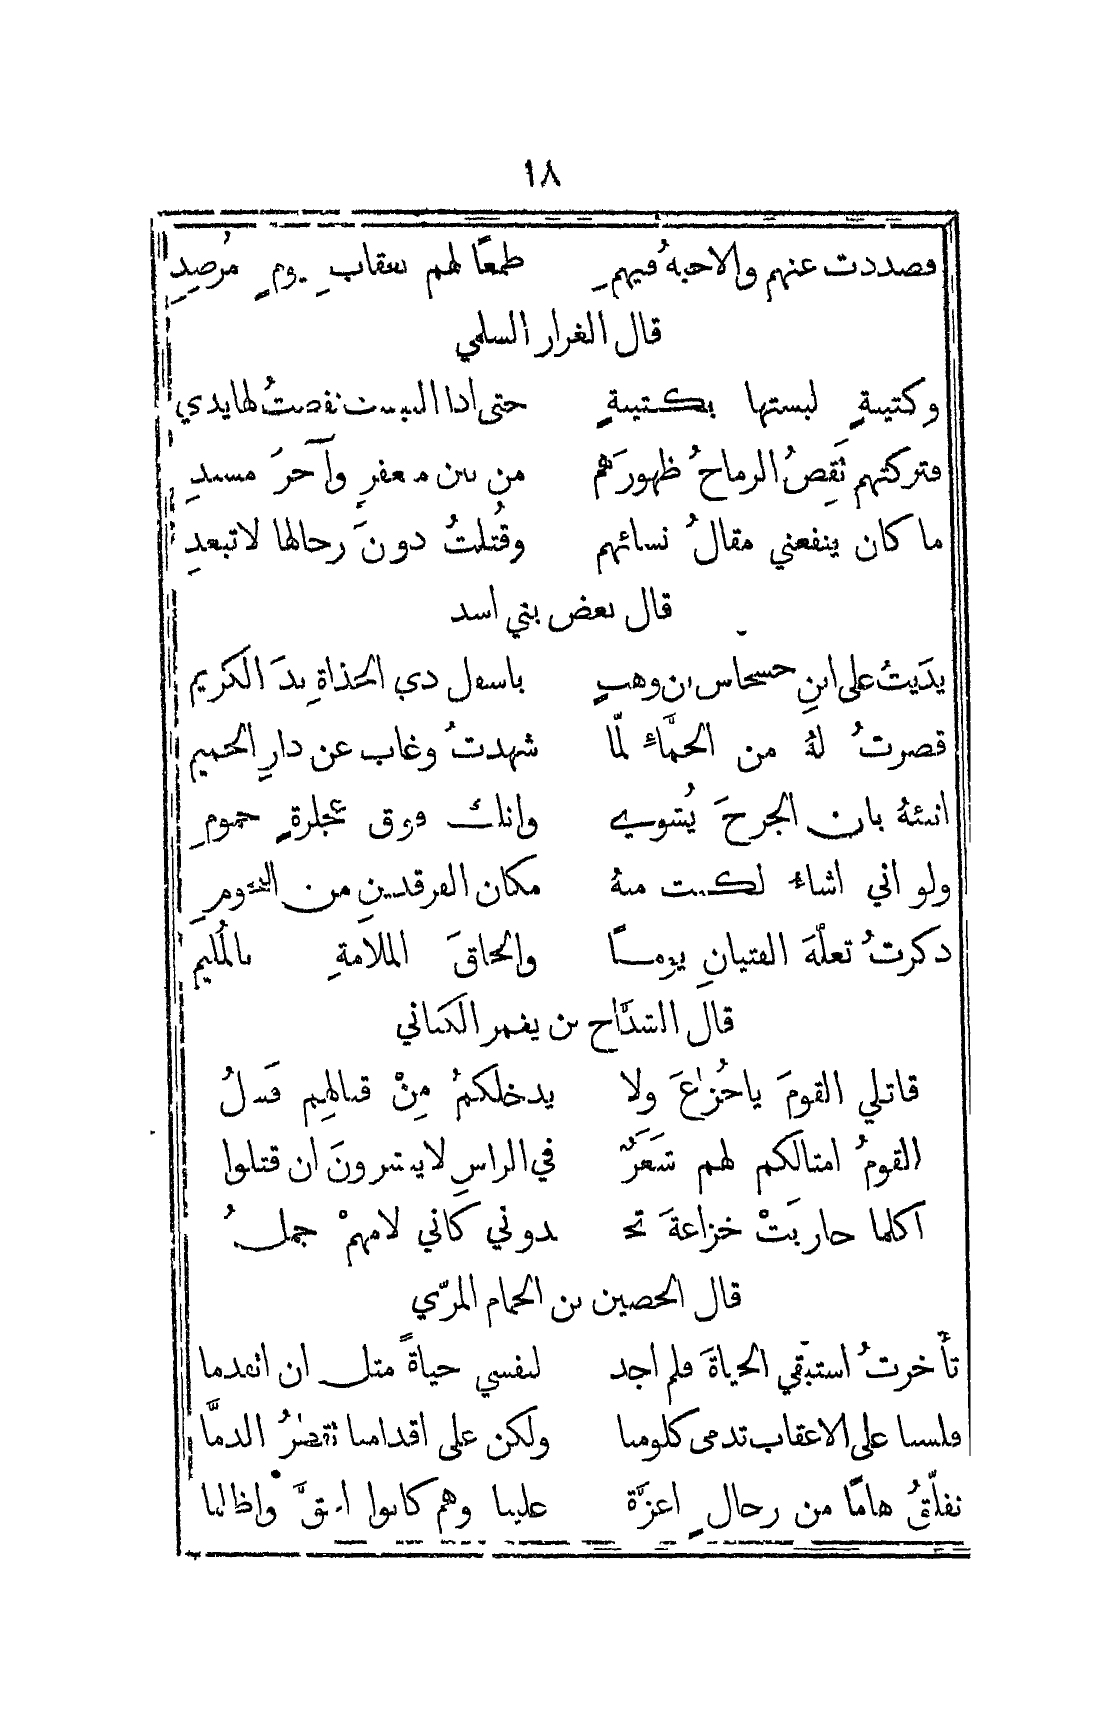 ١٨
فصددت عنهم والاحبةُ فيهمِ طمعًا لهم بعقابِ يومٍ مُرصِدِ
قال الفرار السلمي
وكتيبةٍ لبستها بكتيبةٍ حتى اذا التبست نفضتُ لها يدي
فتركتهم تَقِصُ الرماحُ ظهورَهم من بين منعفرٍ وآخرَ مسندِ
ما كان ينفعني مقالُ نسائهم وقُتلتُ دونَ رجالها لا تبعدِ
قال بعض بني اسد
يدَيتُ على ابنِ حسحاس بن وهبٍ باسفل ذي الجذاةِ يدَ الكريم
قصرتُ لهُ من الحمَّاءِ لمّا شهدتُ وغاب عن دارِ الحميم
انبئهُ بان الجرحَ يُشوي وانك فوق عجلزةٍ جموم
ولو اني اشاءُ لكنت منهُ مكان الفرقدينِ من النجومِ
ذكرتُ تعلّةَ الفتيانِ يومًا والحاقَ الملامةِ بالمُليم
قال الشدَّاخ بن يعمر الكناني
قاتلي القومَ يا خُزاعَ ولا يدخلكمُ مِنْ قتالهِم فَشلُ
القومُ امثالكم لهم شَعَرٌ في الراسِ لا ينشرونَ ان قتلوا
أكلما حاربَتْ خزاعةَ تحـ ـدوني كَاني لامهمْ جملُ
قال الحصين بن الحمام المرّي
تأخرتُ استبقي الحياةَ فلم اجد لنفسي حياةً مثل ان اتقدما
فلسنا على الاعقاب تدمى كلومنا ولكن على اقدامنا تقطرُ الدمَّا
نفلّقُ هامًا من رجالٍ اعزَّة علينا وهم كانوا اعقَّ واظلما